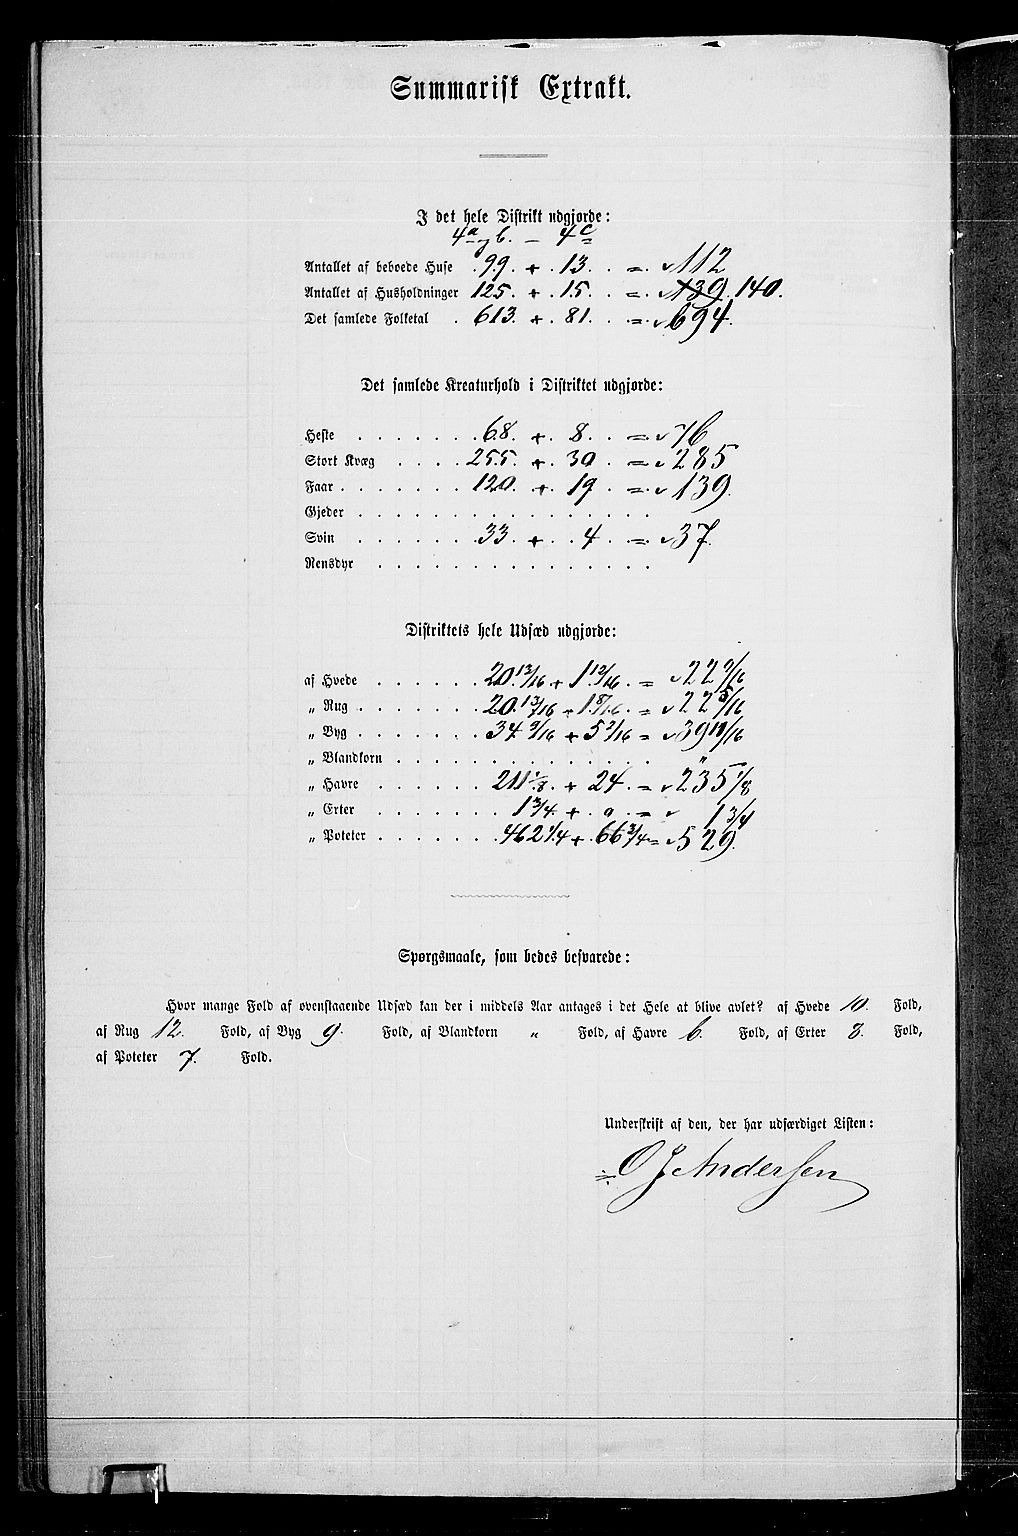 Summarisk Extrakt.
I det hele Distrikt udgjorde:
4a og b. – 4c
Antallet af beboede Huse 99. + 13. = 112
Antallet af Husholdninger 125. + 15. = 139. 140.
Det samlede Folketal 613. + 81. = 694.
Det samlede Kreaturhold i Distriktet udgjorde:
Heste 68. + 8. = 76
Stort Kvæg 255. + 30. = 285
Faar 120. + 19. = 139.
Gjeder
Svin 33. + 4. = 37.
Rensdyr
Distriktets hele Udsæd udgjorde:
af Hvede 20 13/16 + 1 12/16. = 22 9/16
„ Rug 20. 13/16 + 1. 8/16. = 22 5/16
„ Byg 34 9/16 + 5 2/16 = 39 11/16
„ Blandkorn "
„ Havre 211 1/8. + 24. = 235 1/8
„ Erter 1 3/4. + 0. = 1 3/4
„ Poteter 462 1/4 + 66 3/4 = 529.
Spørgsmaale, som bedes besvarede:
Hvor mange Fold af ovenstaaende Udsæd kan der i middels Aar antages i det Hele at blive avlet? af Hvede 10. Fold,
af Rug 12. Fold, af Byg 9. Fold, af Blandkorn „ Fold, af Havre 6. Fold, af Erter 8. Fold,
af Poteter 7. Fold.
Underskrift af den, der har udfærdiget Listen:
O J Andersen